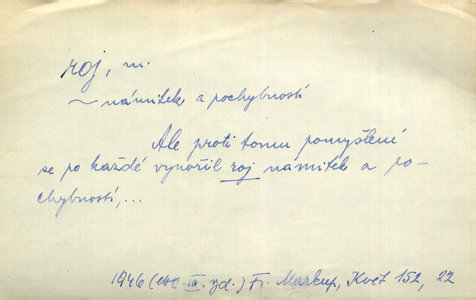 roj, m.
~ námitek a pochybností
Ale proti tomu pomyšlení
se po každé vynořil roj námitek a po-
chybností,...
1946 ( III. vyd.) Fr. Markup, Květ 152, 22